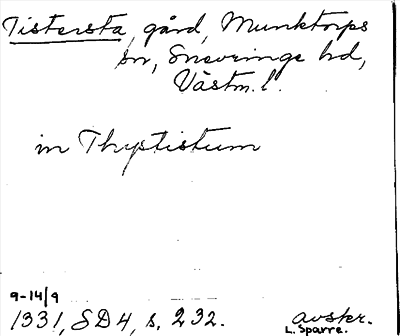 Tistersta, gård, Munktorps
sn, Snevringe hd,
Västm. l.
in Thystistum
9-14/9
1331, SD 4, s. 232.
avskr.
L. Sparre.